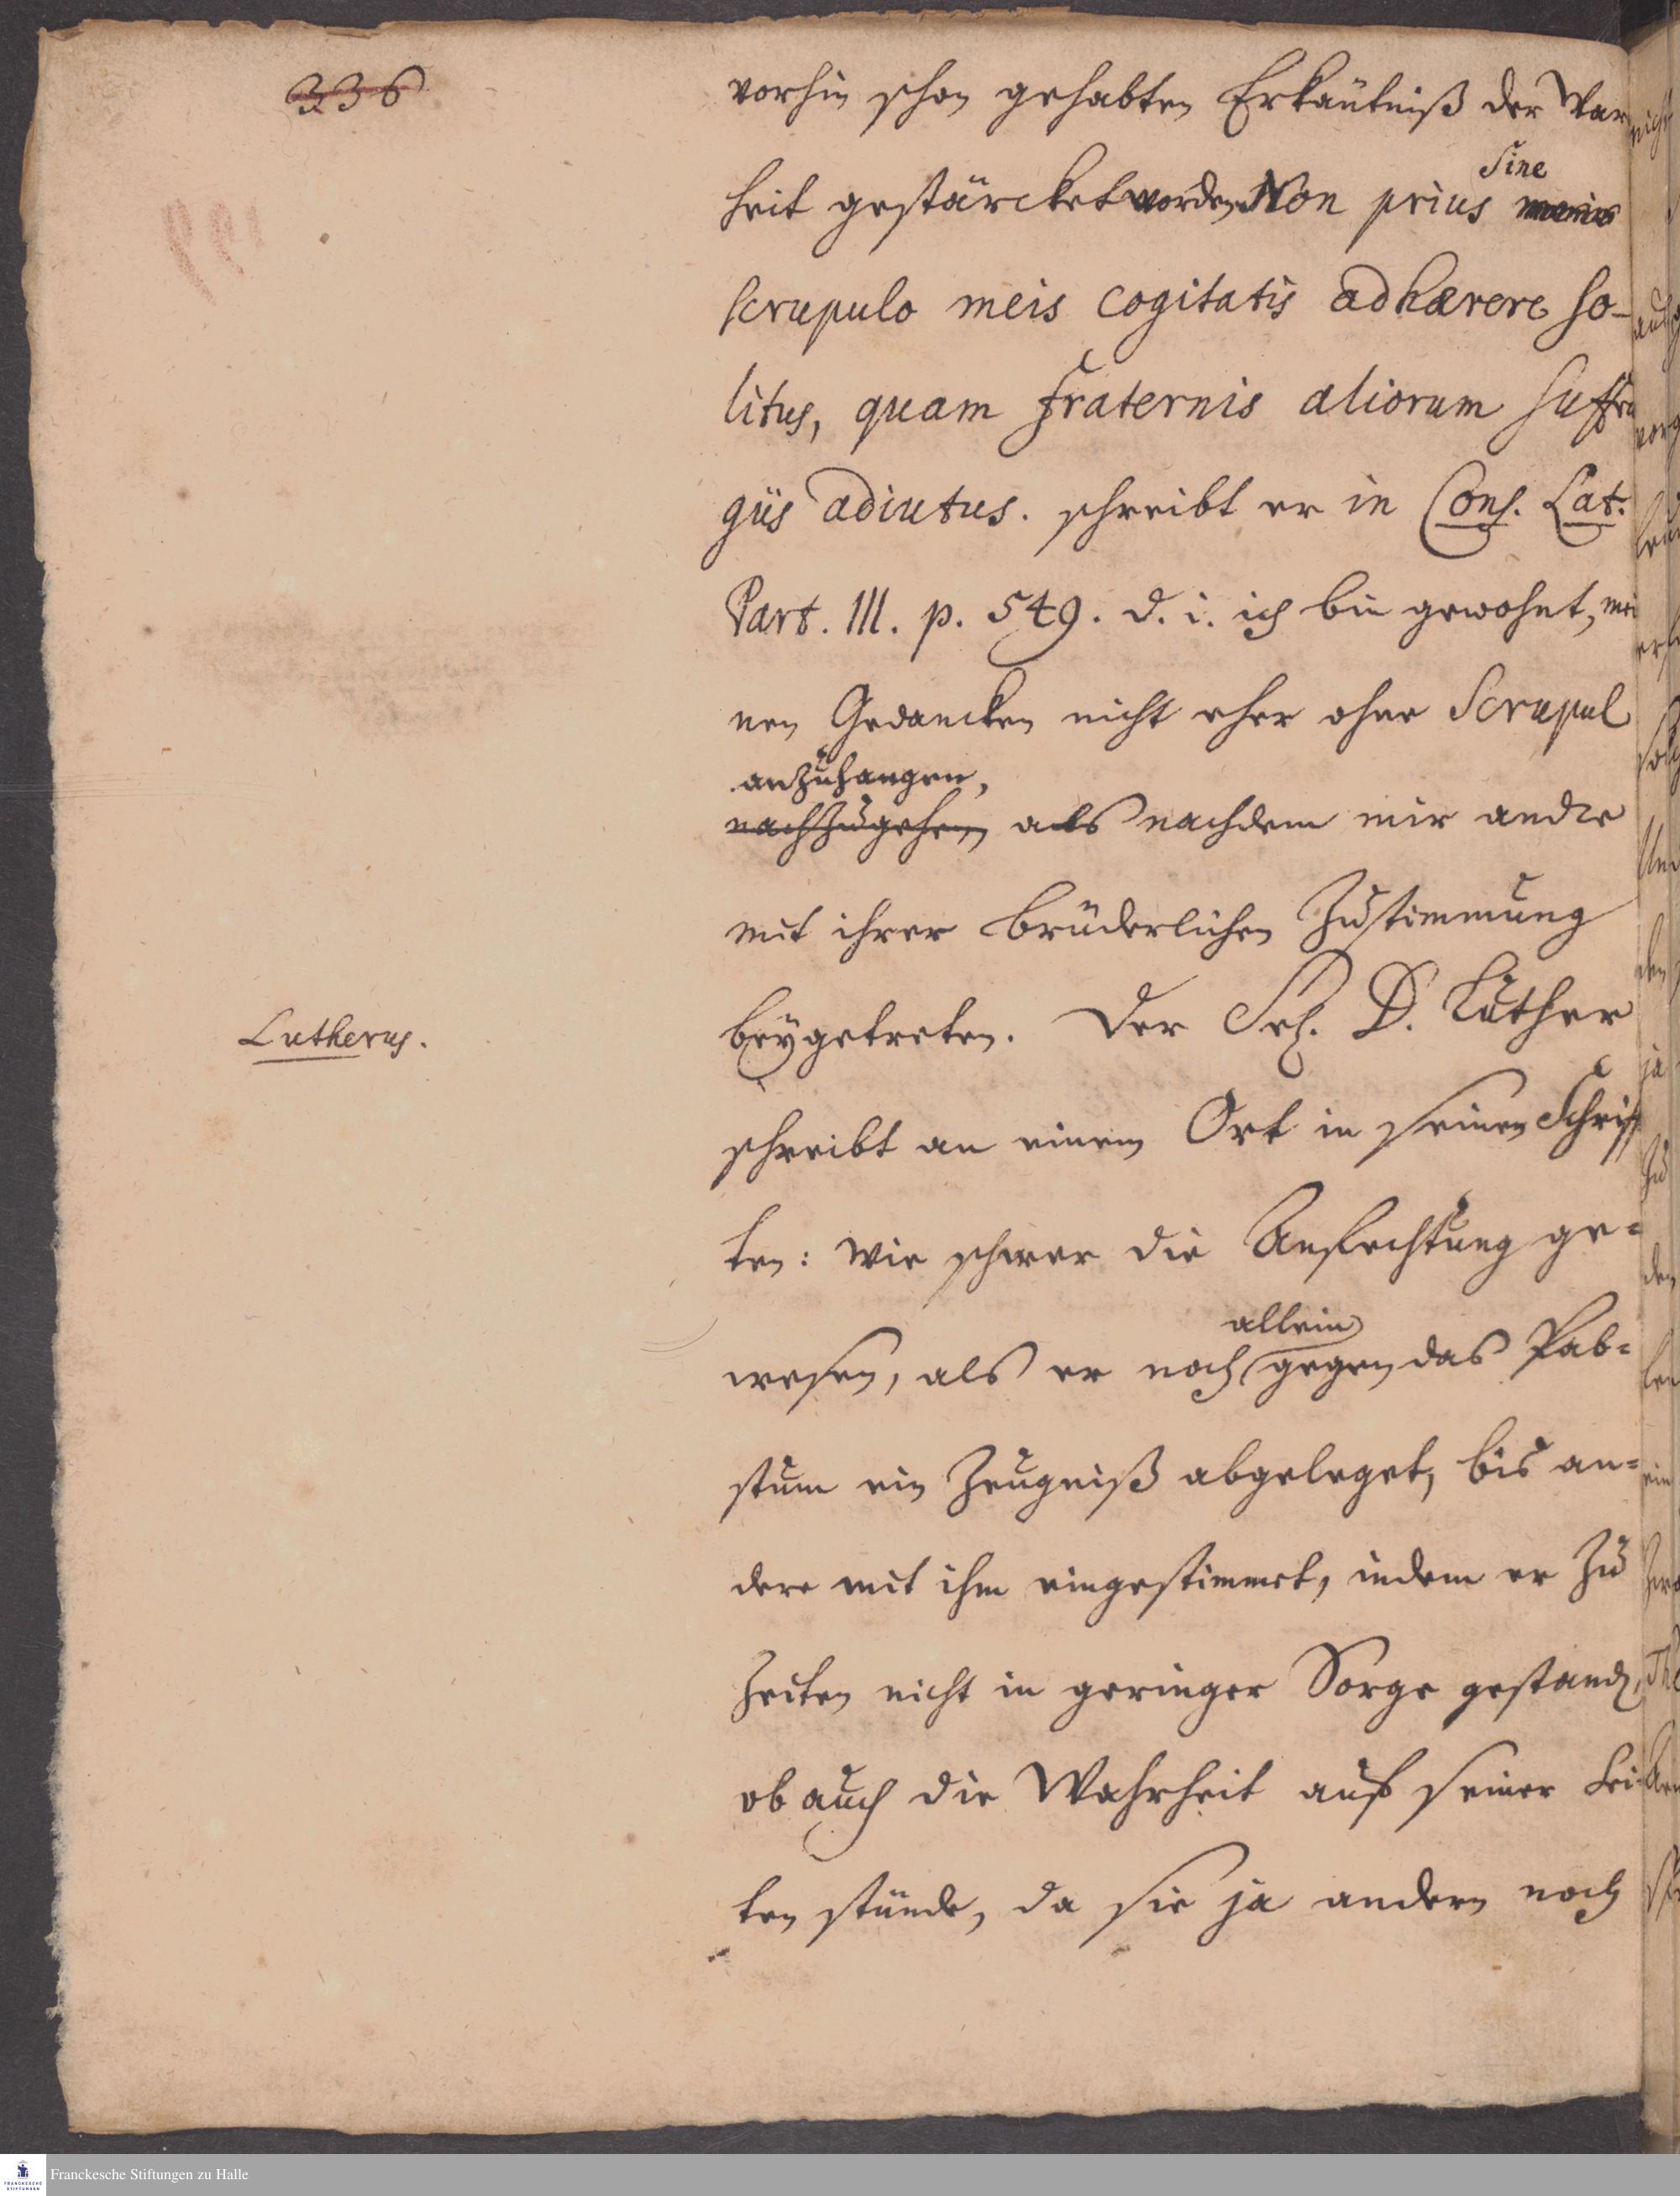 336
vorhin schon gehabten Erkäntniß der War
heit gestärcket worden. Non prius sine
scrupulo meis cogitatis adhærere so-
litus, quam fraternis aliorum suffra
giis adiutus. schreibt er in Cons. Lat.
Part. III. p. 549. d. i. ich bin gewohnt, mei
nen Gedancken nicht eher ohne Scrupul
anzuhangen,
nachzugehen als nachdem mir andre
mit ihrer brüderlichen Zustimmung
beygetreten. Der Sel. D. Luther
Lutherus.
schreibt an einem Ort in seinen Schriff
ten: wie schwer die Anfechtung ge-
wesen, als er noch allein gegen das Pab-
stum ein Zeugniß abgeleget, bis an-
dere mit ihm eingestimmet, indem er zu
Zeiten nicht in geringer Sorge gestanden,
ob auch die Wahrheit auf seiner Sei-
ten stünde, da sie ja andern noch
Franckesche Stiftungen zu Halle